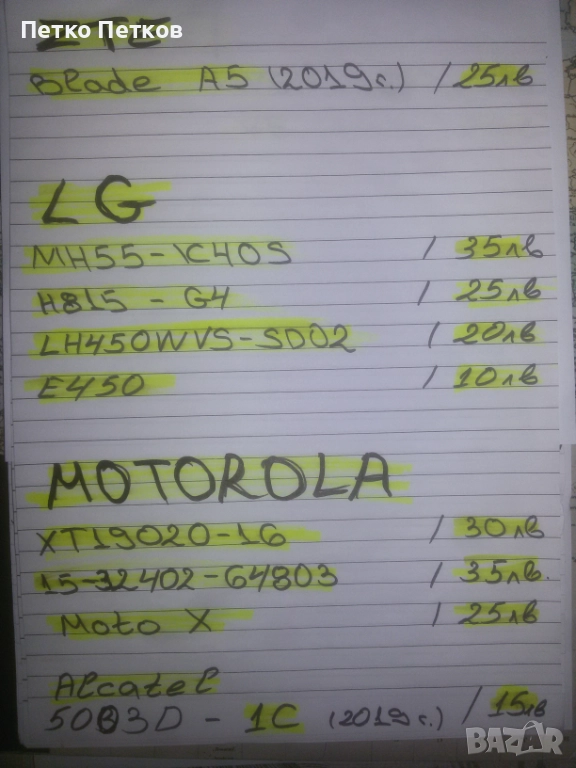 Петко Петков
ZTE
Blade A5 (2019г.) / 25лв
LG
MH55-K40S / 35лв
H815 - G4 / 25лв
LH450WVS-SD02 / 20лв
E450 / 10лв
MOTOROLA
XT19020-16 / 30лв
15-32402-64803 / 35лв.
Moto X / 25лв
Alcatel
5003D - 1C (2019г.) / 15лв
BAZAR